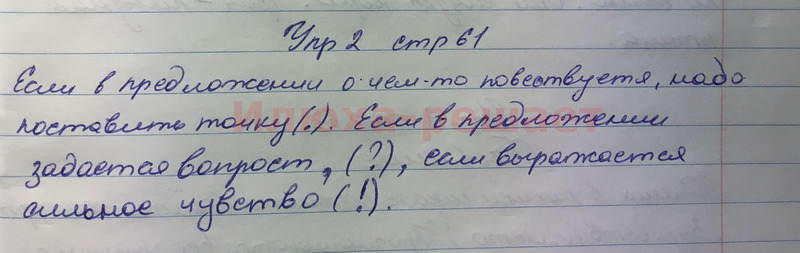 Упр 2 стр 61
Если в предложении о чем-то повествуетя, надо
поставить точку (.). Если в предложении
Илюха-решает
задается вопрост, (?), если выражается
сильное чувство (!).